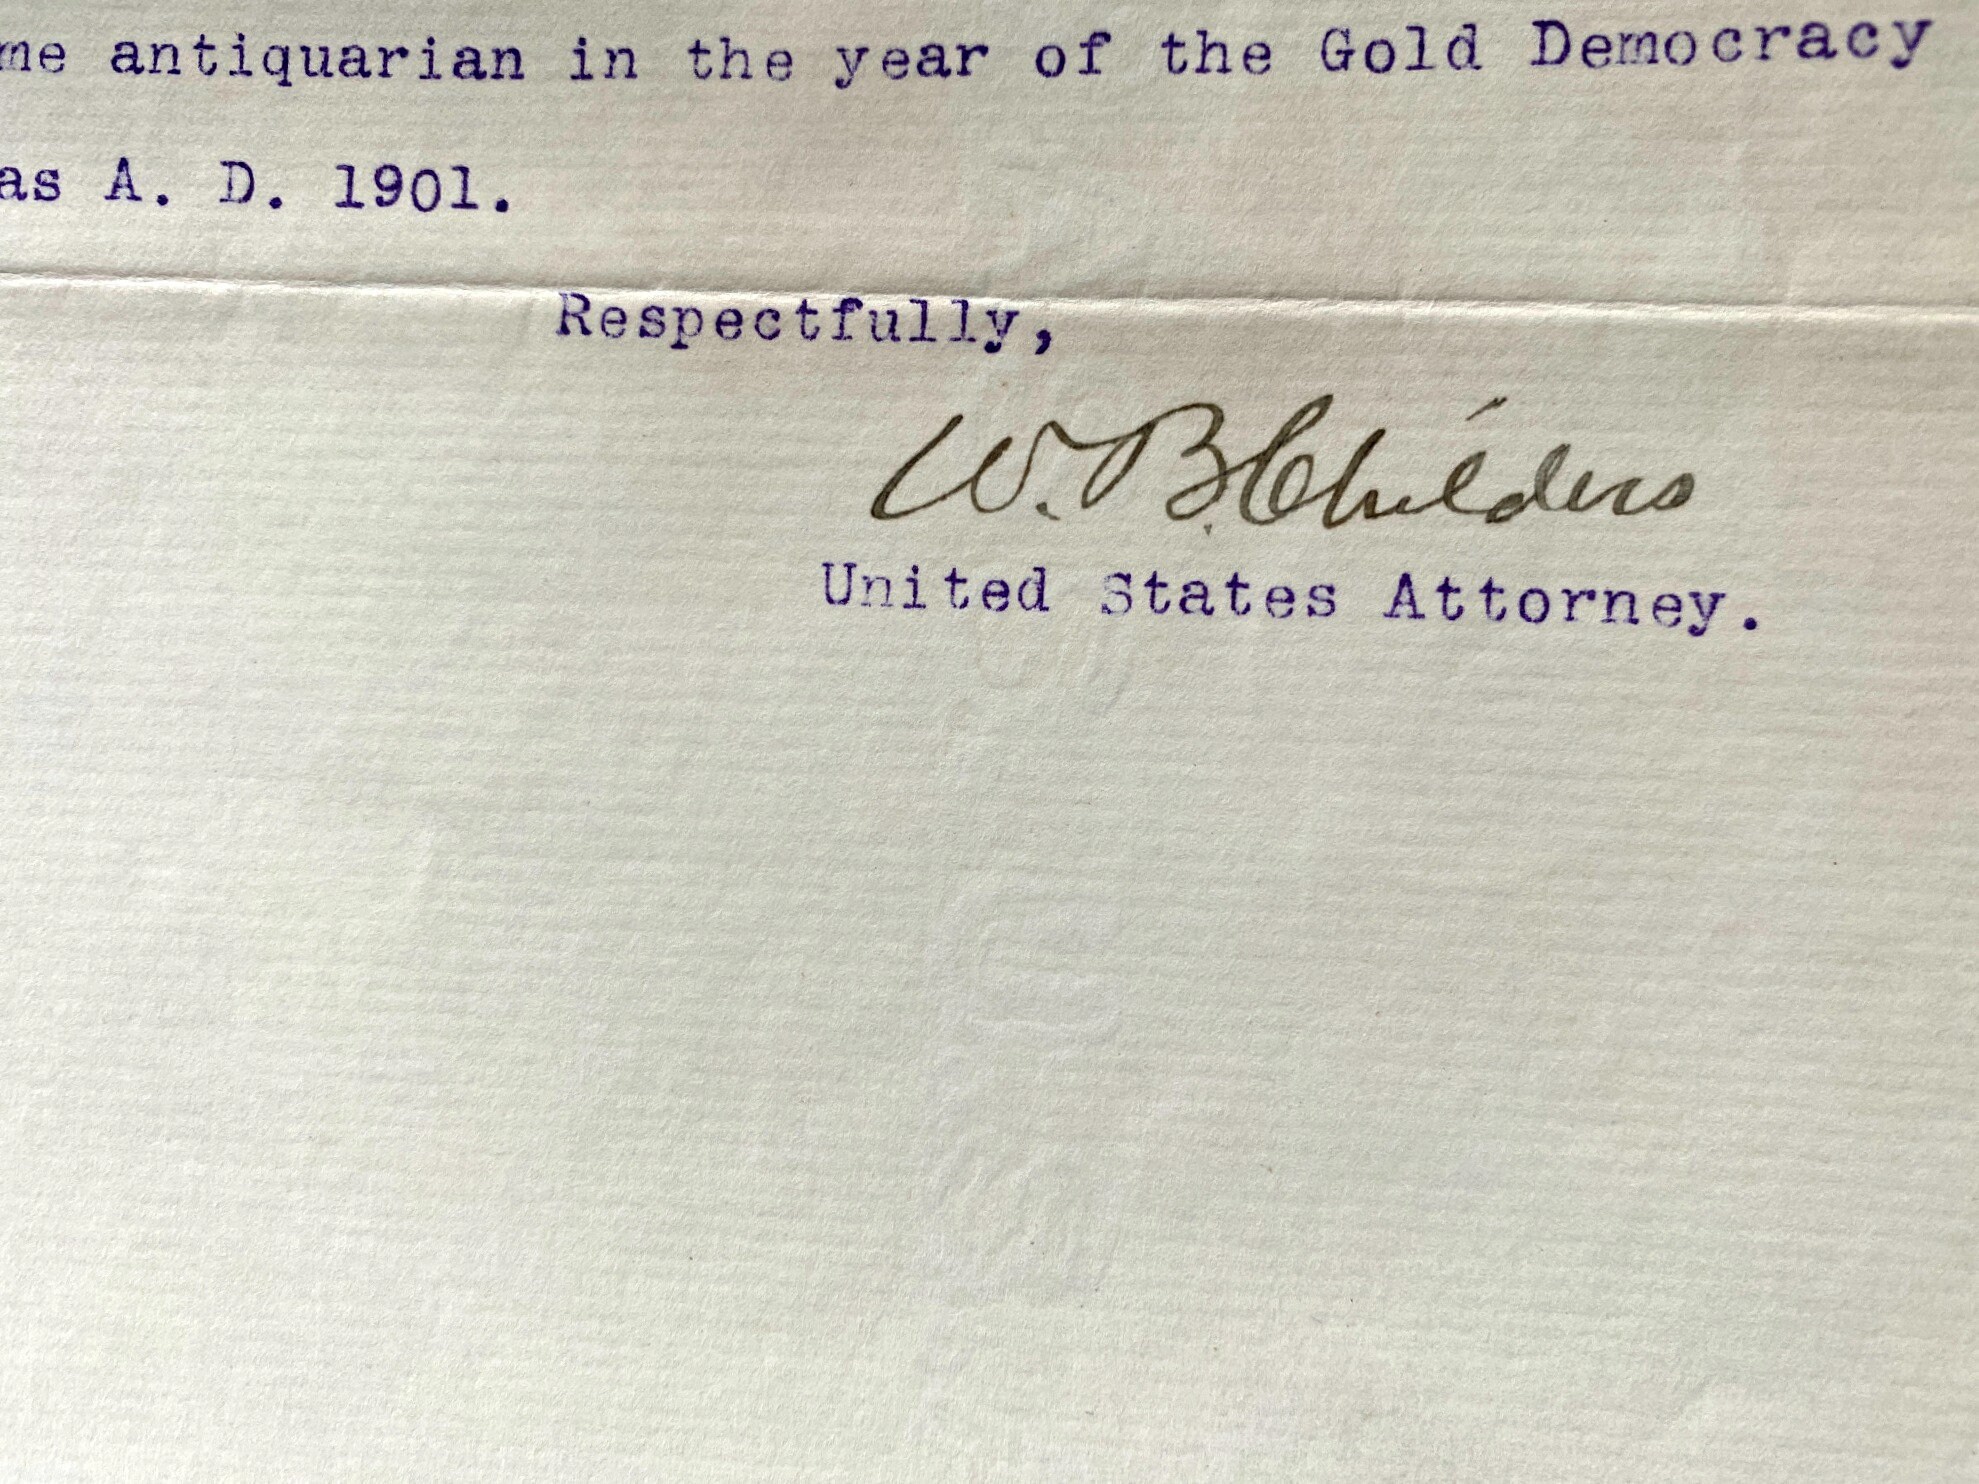 me antiquarian in the year of the Gold Democracy
as A. D. 1901.
Respectfully,
W. B. Childers
United States Attorney.